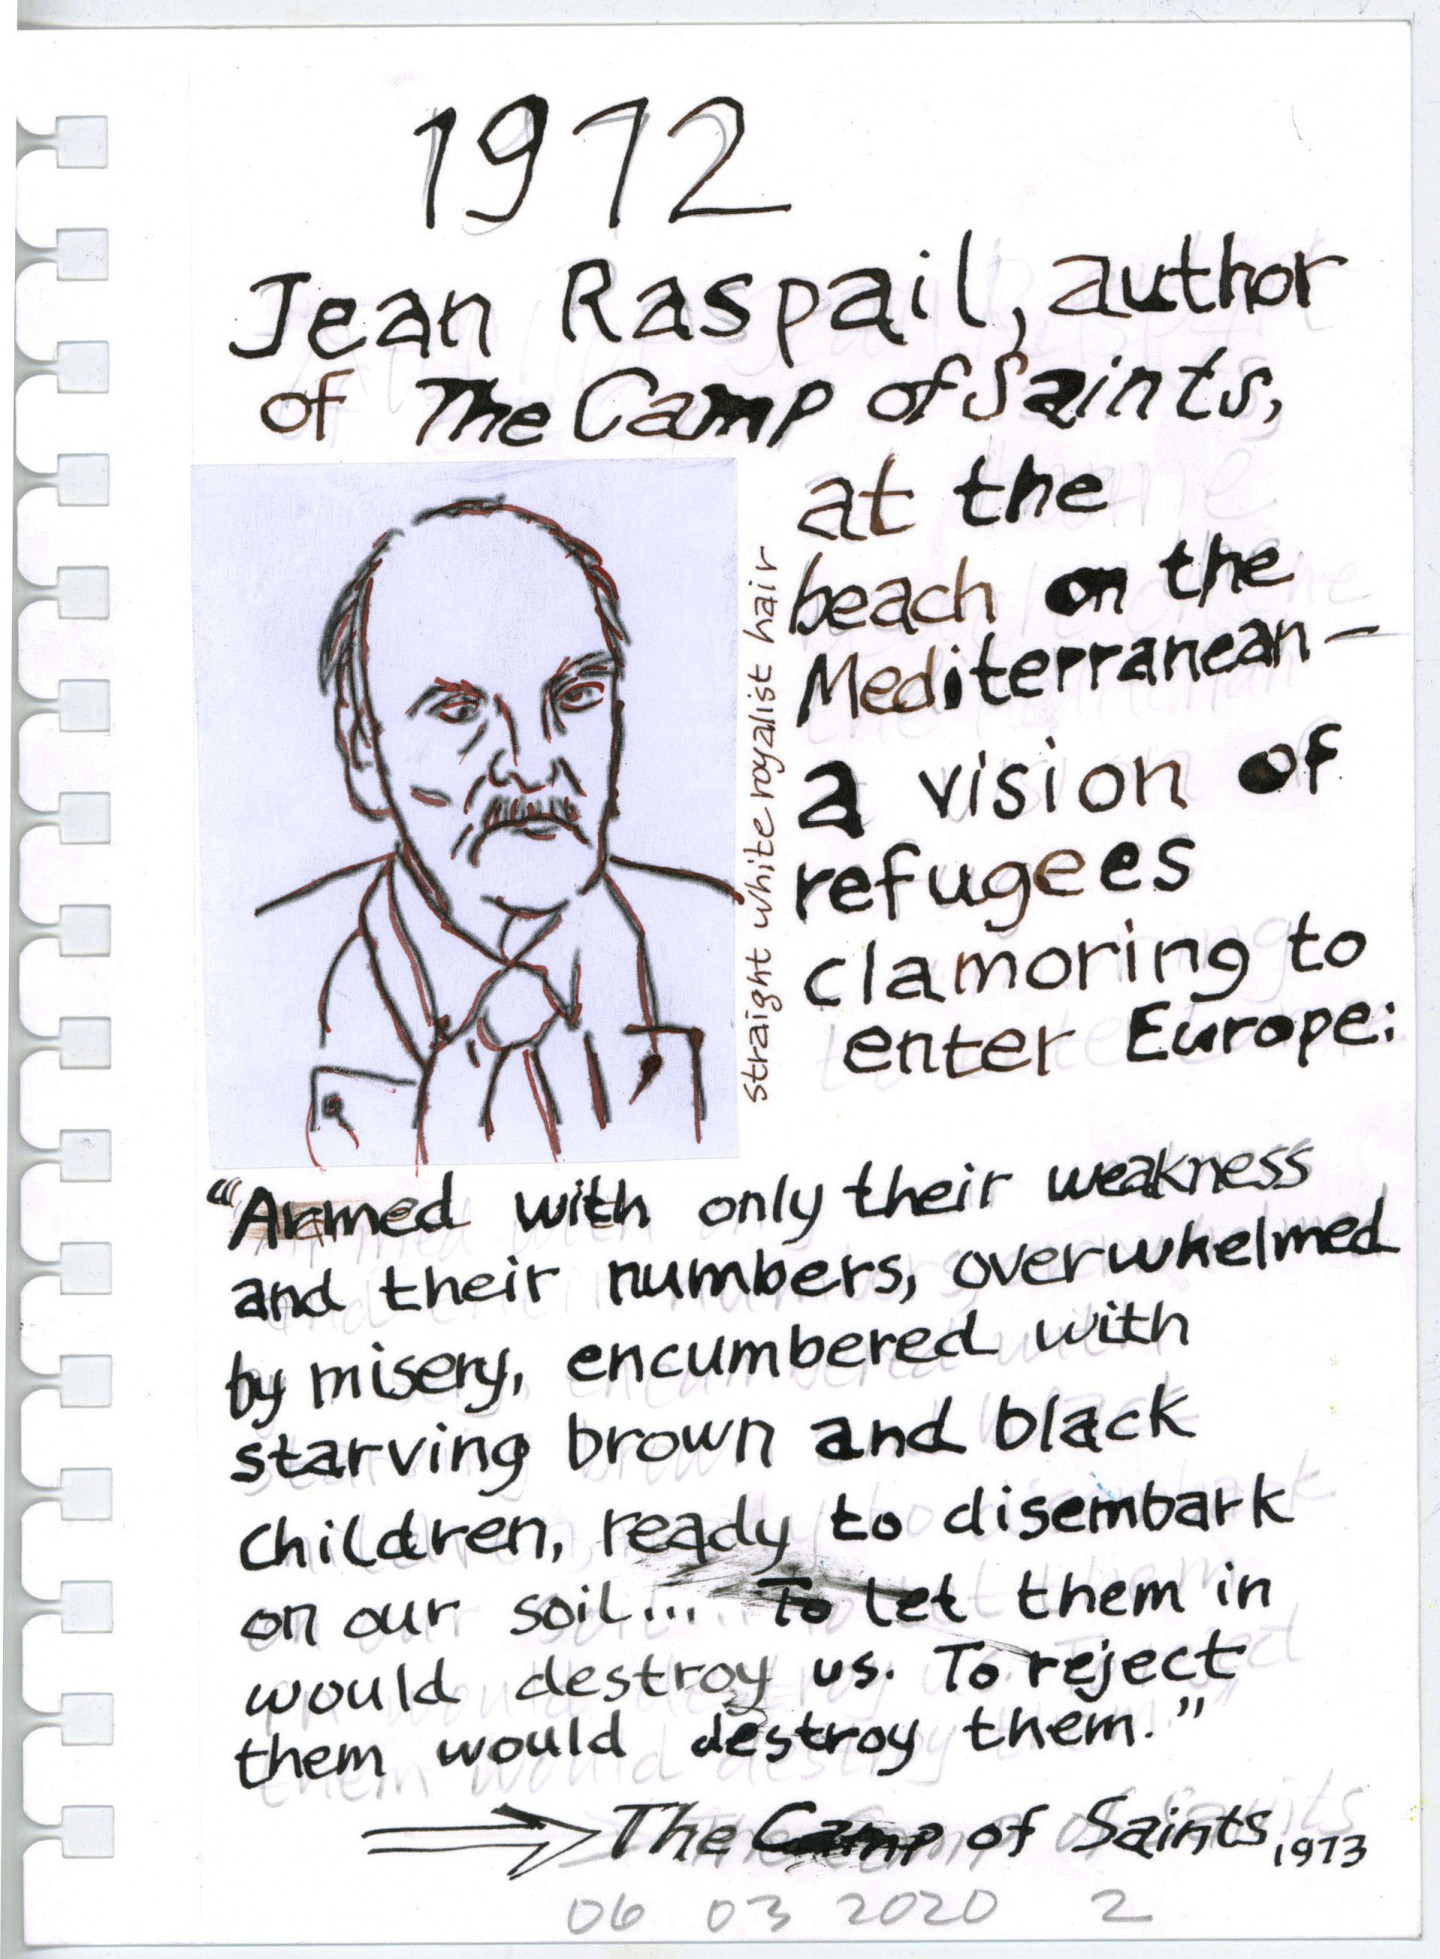 1972
Jean Raspail, author
of The Camp of Saints,
at the
beach on the
Mediterranean—
a vision of
refugees
clamoring to
enter Europe:
straight white royalist hair
“Armed with only their weakness
and their numbers, overwhelmed
by misery, encumbered with
starving brown and black
children, ready to disembark
on our soil... To let them in
would destroy us. To reject
them would destroy them.”
The Camp of Saints, 1973
06 03 2020 2